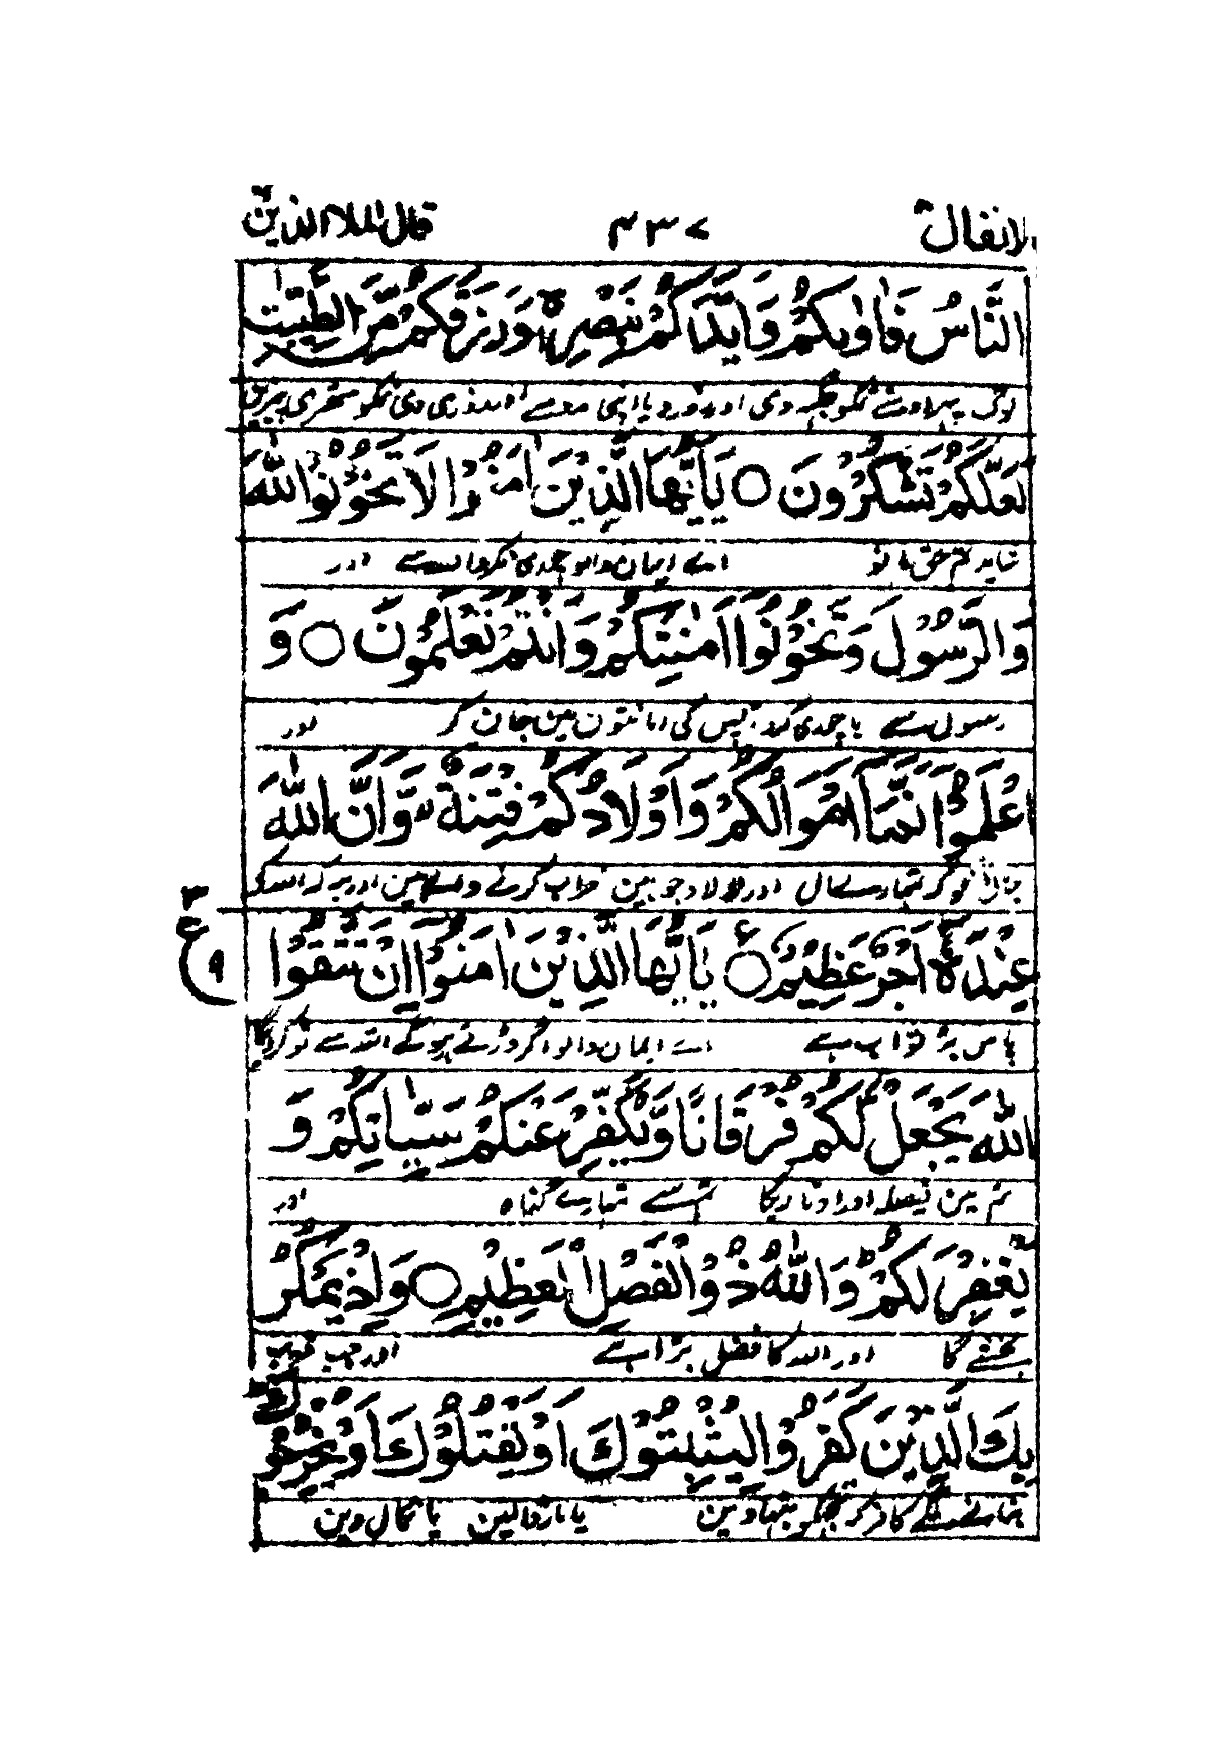 الانفال ٨ ٤٣٧ قال الملا الذين ٩
النَّاسُ فَاٰوٰىكُمْ وَاَيَّدَكُمْ بِنَصْرِهٖ وَرَزَقَكُمْ مِّنَ الطَّيِّبٰتِ
لوگ پھر اوسنے تمکو جگہ دی اور زور دیا اپنی مدد سے اور روزی دی تمکو ستھری چیزیں
لَعَلَّكُمْ تَشْكُرُوْنَ ○ يٰۤاَيُّهَا الَّذِيْنَ اٰمَنُوْا لَا تَخُوْنُوا اللّٰهَ
شاید تم حق مانو اے ایمان والو چوری نکرو اللہ سے اور
وَالرَّسُوْلَ وَتَخُوْنُوْۤا اَمٰنٰتِكُمْ وَاَنْتُمْ تَعْلَمُوْنَ ○ وَ
رسول سے یا چوری کرو آپس کی امانتون مین جان کر اور
اعْلَمُوْۤا اَنَّمَاۤ اَمْوَالُكُمْ وَاَوْلَادُكُمْ فِتْنَةٌ وَّاَنَّ اللّٰهَ
جان لو کہ تمہارے مال اور اولاد جو ہین خراب کرنے والے ہین اور یہ کہ اللہ کے
عِنْدَهٗۤ اَجْرٌ عَظِيْمٌ ○ يٰۤاَيُّهَا الَّذِيْنَ اٰمَنُوْۤا اِنْ تَتَّقُوا
پاس بڑا ثواب ہے اے ایمان والو اگر ڈرتے رہو گے اللہ سے تو کردیگا
ع ٩
اللّٰهَ يَجْعَلْ لَّكُمْ فُرْقَانًا وَّيُكَفِّرْ عَنْكُمْ سَيِّاٰتِكُمْ وَ
تم مین فیصلہ اور اوتاریگا تم سے تمہارے گناہ اور
يَغْفِرْ لَكُمْ وَاللّٰهُ ذُو الْفَضْلِ الْعَظِيْمِ ○ وَاِذْ يَمْكُرُ
بخشے گا اور اللہ کا فضل بڑا ہے اور جب فریب
بِكَ الَّذِيْنَ كَفَرُوْا لِيُثْبِتُوْكَ اَوْ يَقْتُلُوْكَ اَوْ يُخْرِجُوْكَ
بنانے لگے کافر کہ تجھکو بٹھا دین یا مار ڈالین یا نکال دین